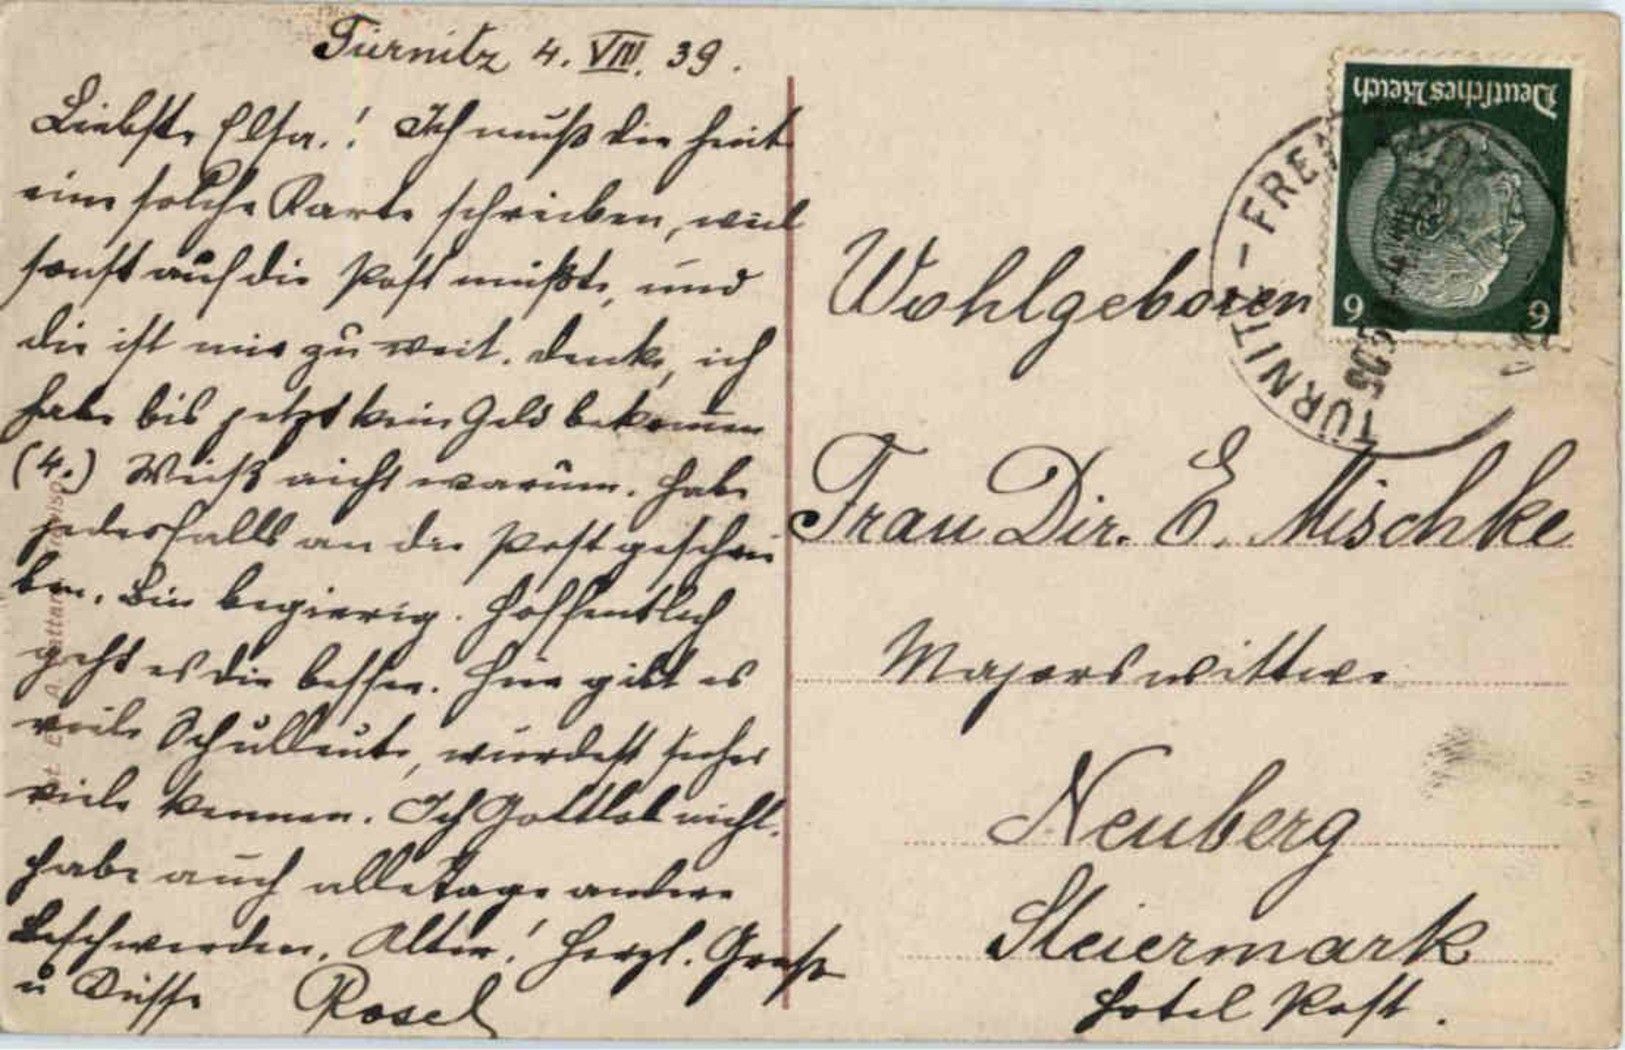 Türnitz 4. VIII. 39.
Liebste Elsa! Ich muß dir heut
eine solche Karte schreiben, weil
sonst auf die Post müßte, und
die ist mir zu weit. Denke, ich
habe bis jetzt kein Geld bekommen
(4.) Weiß nicht warum. Habe
jedesfalls an die Post geschrie
ben. Bin begierig. Hoffentlich
geht es dir besser. Hier gibt es
viele Schulleute, würdest sicher
viele kennen. Ich Gottlob nicht.
Habe auch alle Tage andere
Beschwerden. Alter! Herzl. Grüße
u Küsse Rosel
Deutsches Reich
6 6
TÜRNITZ - FRE
Wohlgeboren
Frau Dir. E. Mischke
Majorswittwe
Neuberg
Steiermark
Hotel Post.